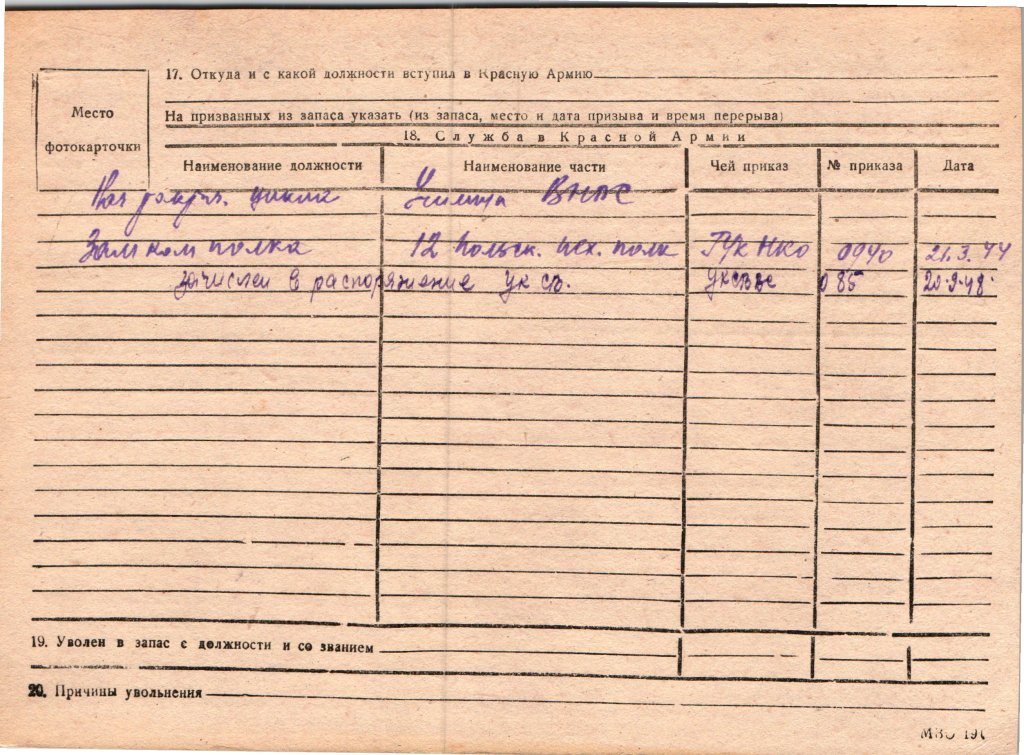 17. Откуда и с какой должности вступил в Красную Армию
Место
фотокарточки
На призванных из запаса указать (из запаса, место и дата призыва и время перерыва)
18. Служба в Красной Армии
Наименование должности Наименование части Чей приказ № приказа Дата
Нач цикла Училища ВНОС
Зам ком полка 12 польск. пех. полк ГУК НКО 0940 21.3.44
зачислен в распоряжение УК СВ. УКСВ 085 20.3.48
19. Уволен в запас с должности и со званием
20. Причины увольнения